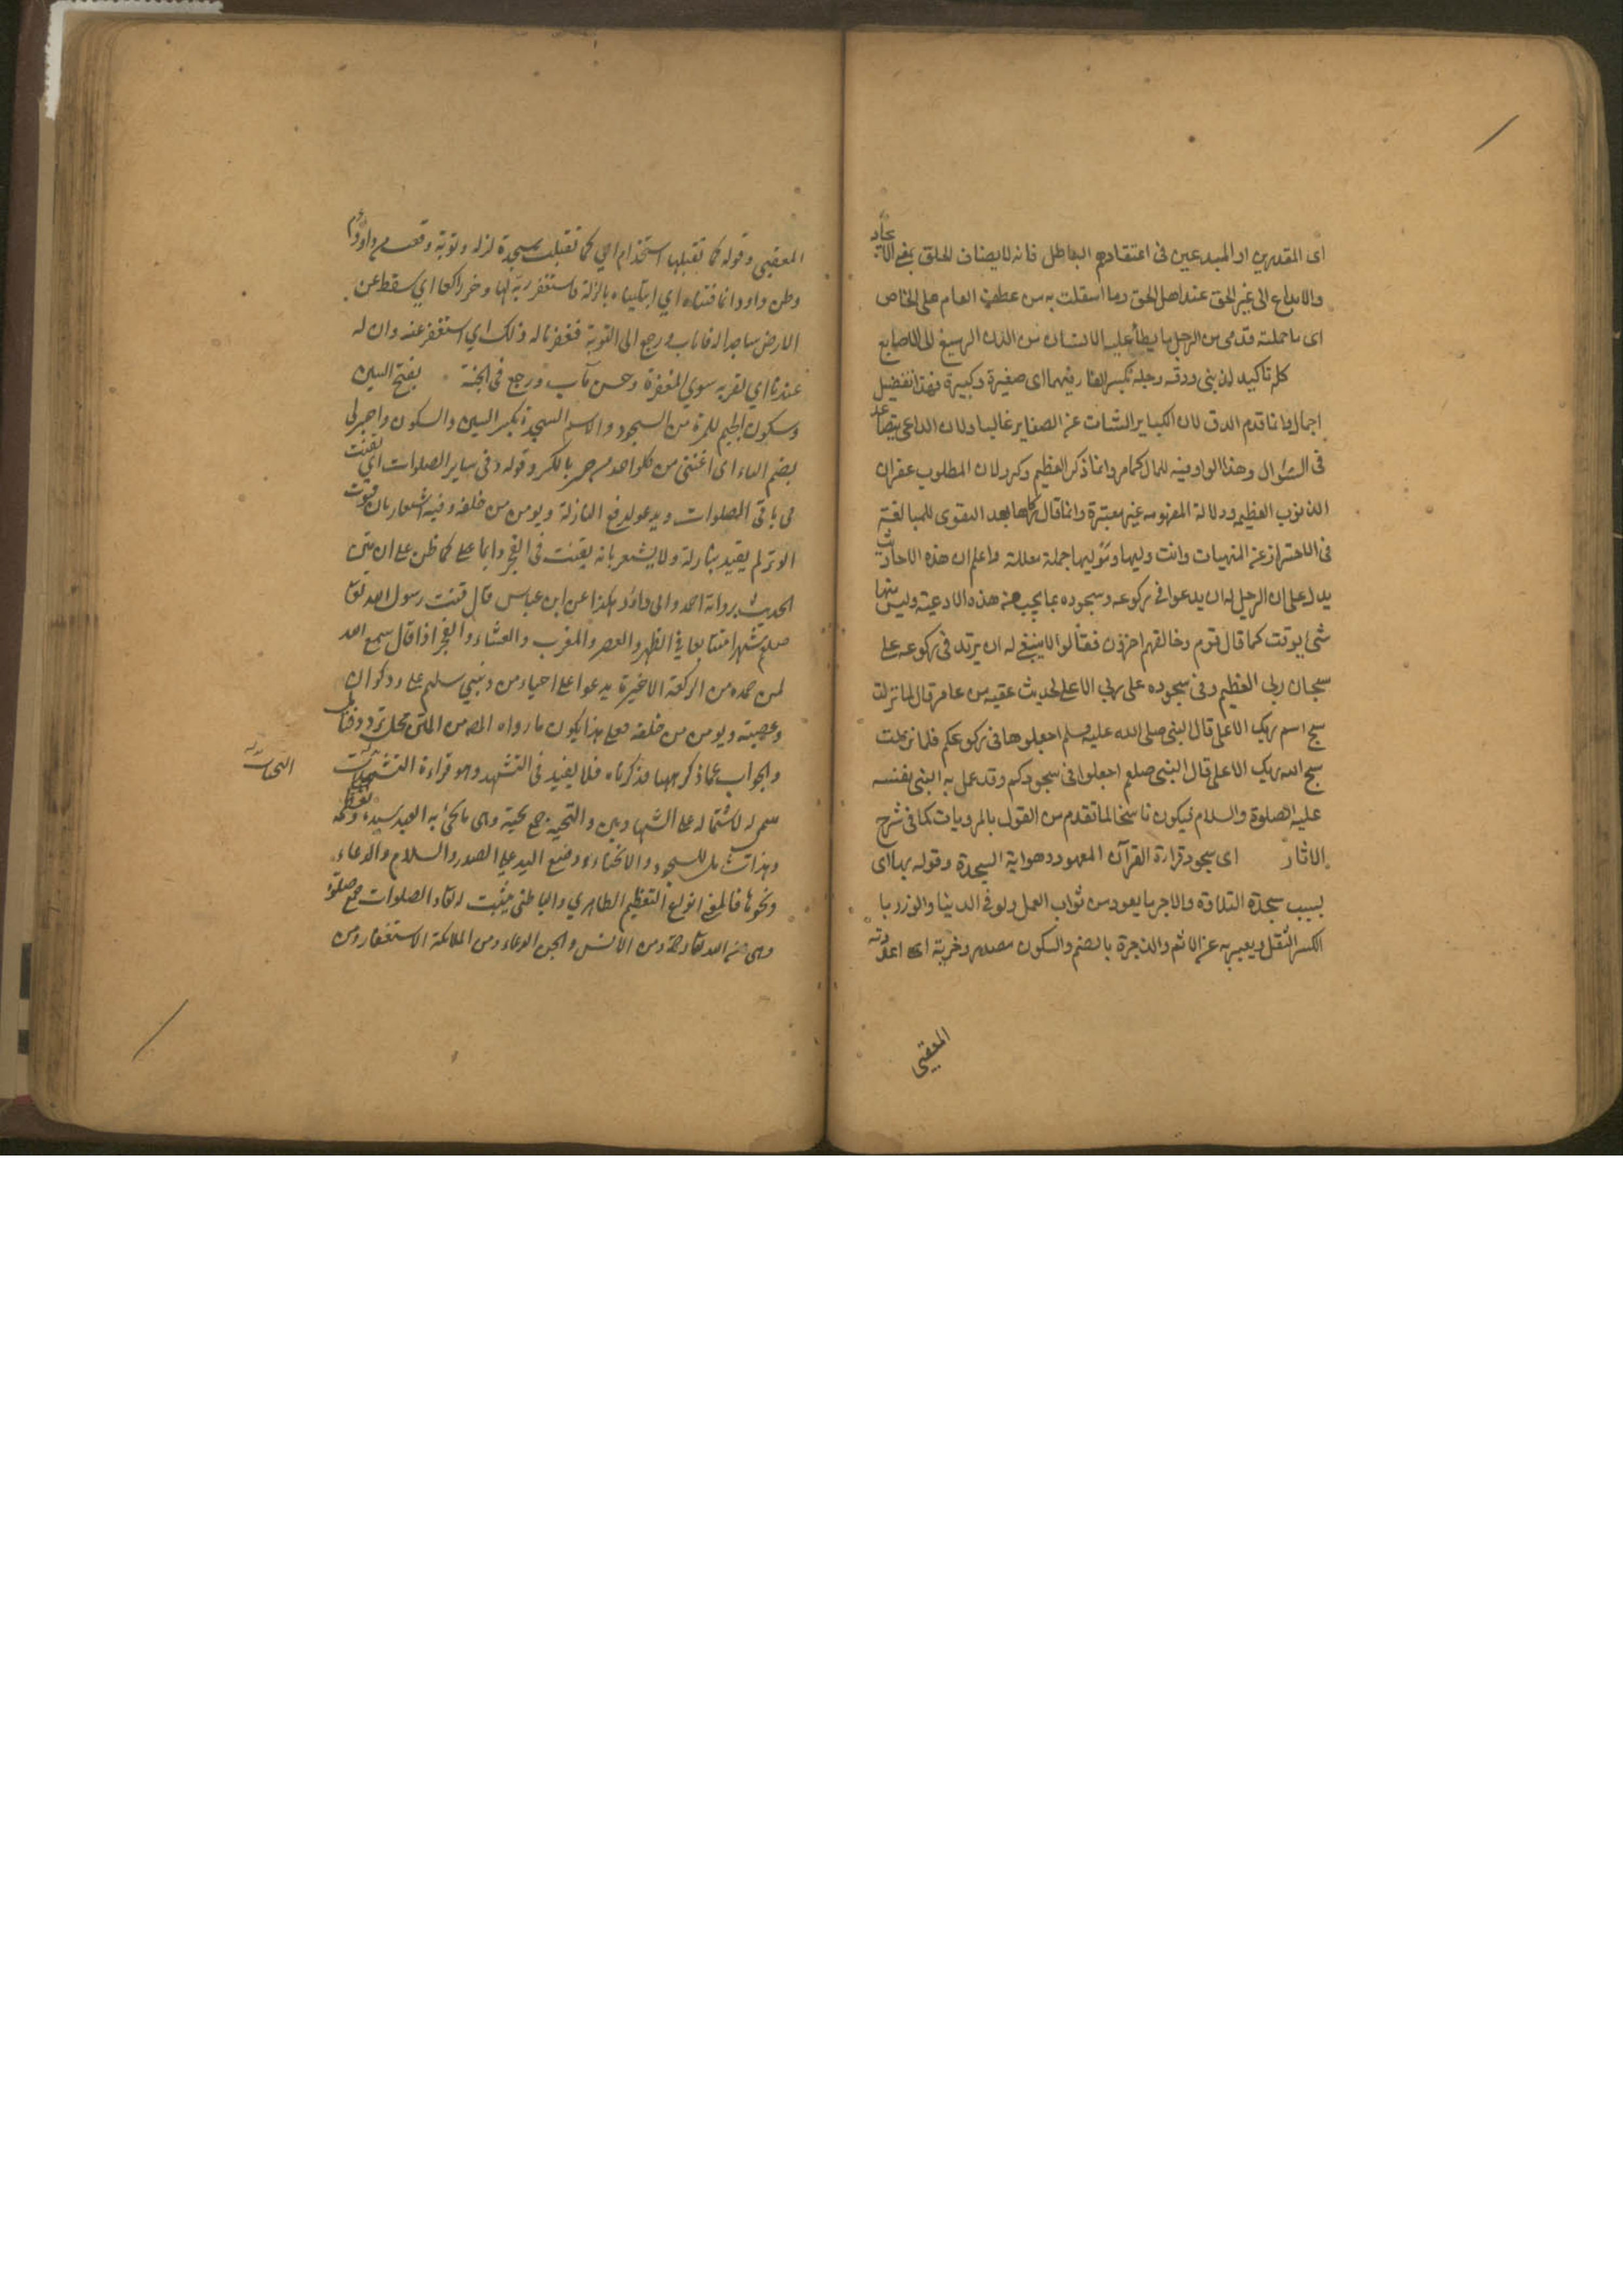 اى المقدرين او المبدعين فى اعتقادهم الباطل فانه لا يضاف الخلق بمعنى الايجاد
والابداع الى غير الحق عند اهل الحق وما استقلت به من عطف العام على الخاص
اى ما حملته قدمى من الرجل ما يطأ عليه الانسان من لدن الرسغ الى الاصابع
كله تاكيد لذنبى ودقه وجله بكسر الفاء فيهما اى صغيرة وكبيرة فهذا تفضيل
اجمال وانما قدم الدق لان الكباير انشات عن الصغاير غالبا ولان الداعى يتصاعد
فى السؤال وهذا الواو فيه للحال كما مر وانما ذكر العظيم وكرر لان المطلوب غفران
الذنوب العظيمه ودلالة المفهوم غير معتبرة وانما قال زكها بعد التقوى للمبالغة
فى الاحتراز عن المنهيات وانت وليها وموليها جملة معللة واعلم ان هذه الاحاديث
يدل على ان الرجل له ان يدعوا فى ركوعه وسجوده بما يحب من هذه الادعية وليس منها
شى موقت كما قال قوم وخالفهم اخرون فقالوا لا ينبغى له ان يزيد فى ركوعه على
سبحان ربى العظيم وفى سجوده على ربى الاعلى لحديث عقبه بن عامر قال لما نزلت
سبح اسم ربك الاعلى قال النبى صلى الله عليه وسلم اجعلوها فى ركوعكم فلما نزلت
سبح الله ربك الاعلى قال النبى صلعم اجعلوا فى سجودكم وقد عمل به النبى بنفسه
عليه الصلوة والسلام فيكون ناسخا لما تقدم من القول بالمرويات كما فى شرح
الاثار اى سجود قرارة القرآن المعهود وهو اية السجدة وقوله بها اى
بسبب سجدة التلاوة والاجر ما يعود من ثواب العمل ولو فى الدنيا والوزر با
الكسر الثقل ويعبر به عن الاثم والذخرة بالضم والسكون مصدر ذخرته اى اعددته
المعقبى
المعقبى وقوله كما تقبلها استخدام اى كما تقبلت سجدة لزلة وتوبة وقعت من داود م
وظن داود انما فتناه اى ابتليناه بالزلة فاستغفر ربه لها وخر راكعا اي سقط عن
الارض ساجدا له فاناب ورجع الى التوبة فغفرنا له ذلك اى استغفر عنه وان له
عندنا اي لقربه سوى المغفرة وحسن مآب ورجع فى الجنة بفتح السين
وسكون الجيم للمرة من السجود والاسم السجدة بكسر السين والسكون واجبرلى
بضم الباء اى اغننى من كلوا حد من جبر بالكسر وقوله وفى ساير الصلوات اى يقنت
فى باقى الصلوات ويدعو لدفع النازلة ويومن من خلفه وفيه اشعار بان قنوت
الوتر لم يقيد بنازلة ولا يشعر بانه يقنت فى الفجر دايما على كما ظن على ان متن
الحديث برواية احمد وابى داود هكذا عن ابن عباس قال قنت رسول الله تعا
صلعم شهرا متتابعا فى الظهر والعصر والمغرب والعشاء والفجر اذا قال سمع الله
لمن حمده من الركعة الاخيرة يدعوا على احياء من بنى سليم على رعل وذكوان
وعصية ويومن من خلفه فعلى هذا يكون ما رواه المص من المتن محل تردد
والجواب عما ذكر ههنا ما ذكرناه فلا يفيد فى التشهد وهو قراءة التحيات
سمى له لاشتماله على الشهادتين والتحية جمع تحية وهى ما يحيى به العبد سيده
وهذا شامل للسجود والانحناء ووضع اليد على الصدر والسلام والدعاء
ونحوها فالمعنى انواع التعظيم الظاهري والباطنى يثبت لله تعا والصلوات جمع صلوة
وهى من الله تعا رحمة ومن الانس والجن الدعاء ومن الملائكة الاستغفار ومن
التحيات